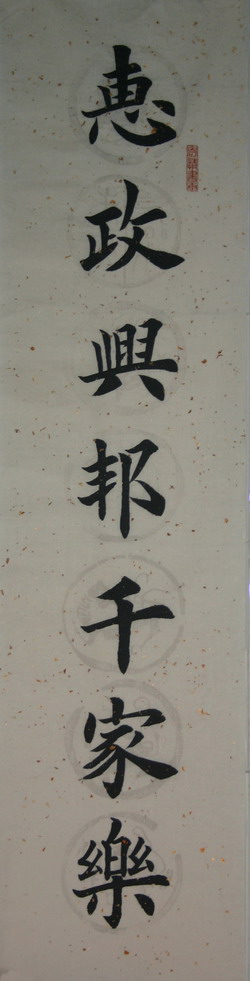 惠政興邦千家樂